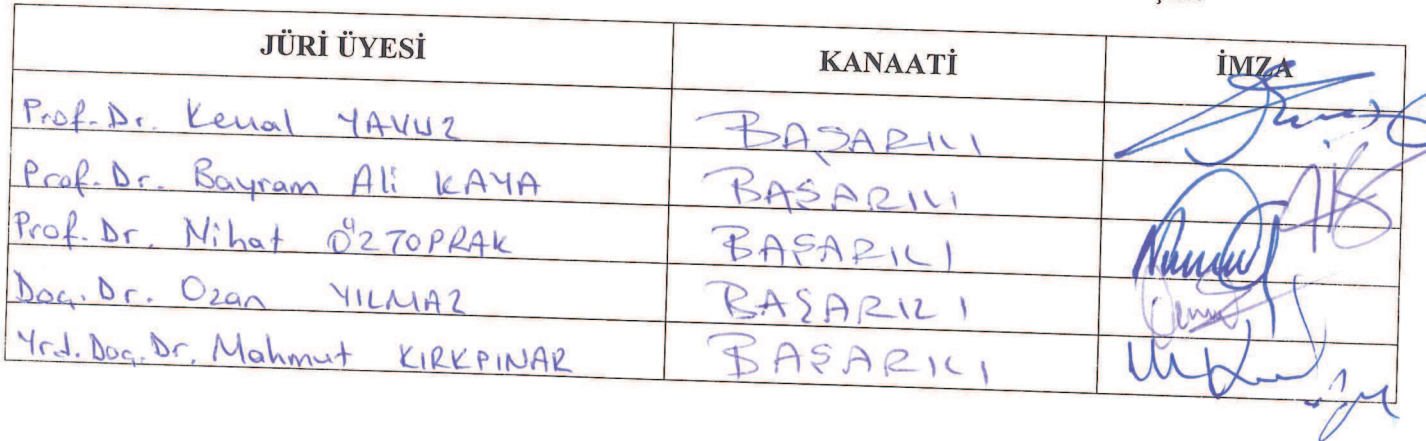 JÜRİ ÜYESİ KANAATİ İMZA
Prof. Dr. Kemal YAVUZ BAŞARILI
Prof. Dr. Bayram Ali KAYA BAŞARILI
Prof. Dr. Nihat ÖZTOPRAK BAŞARILI
Doç. Dr. Ozan YILMAZ BAŞARILI
Yrd. Doç. Dr. Mahmut KIRKPINAR BAŞARILI